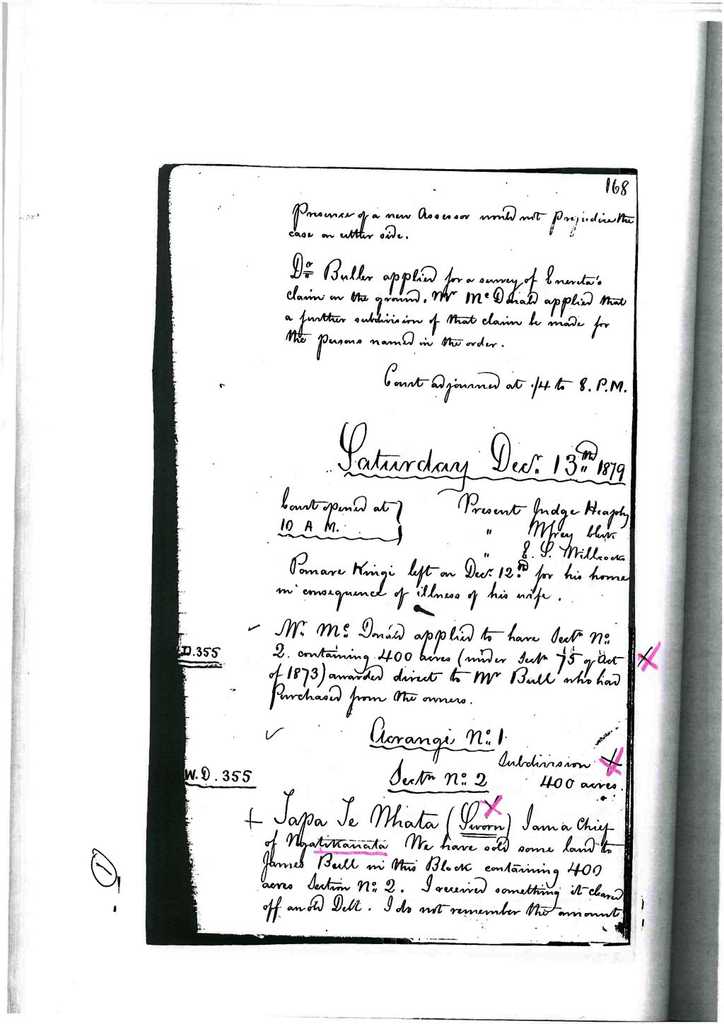 168
Presence of a new Assessor would not prejudice the
case on either side.
Dr Buller applied for a survey of Enereta's
claim on the ground. Mr McDonald applied that
a further subdivision of that claim be made for
the persons named in the order.
Court adjourned at 1/4 to 8. P.M.
Saturday Decr. 13th 1879
Court opened at
10 A M.
Present Judge Heaphy
" clerk
" E. S. Willcocks
Pomare Kingi left on Decr. 12th for his home
in consequence of illness of his wife.
Mr. McDonald applied to have Sectn No
D.355
2. containing 400 acres (under Sectn 75 of Act
of 1873) awarded direct to Mr Bull who had
purchased from the owners.
Aorangi No. 1
Subdivision
W.D.355
Sectn No. 2
400 acres.
Tapa Te Whata (Sworn) I am a Chief
of Ngatikauata We have sold some land to
James Bull in this Block containing 400
acres Section No. 2. I received something it cleared
off an old Debt. I do not remember the amount
1